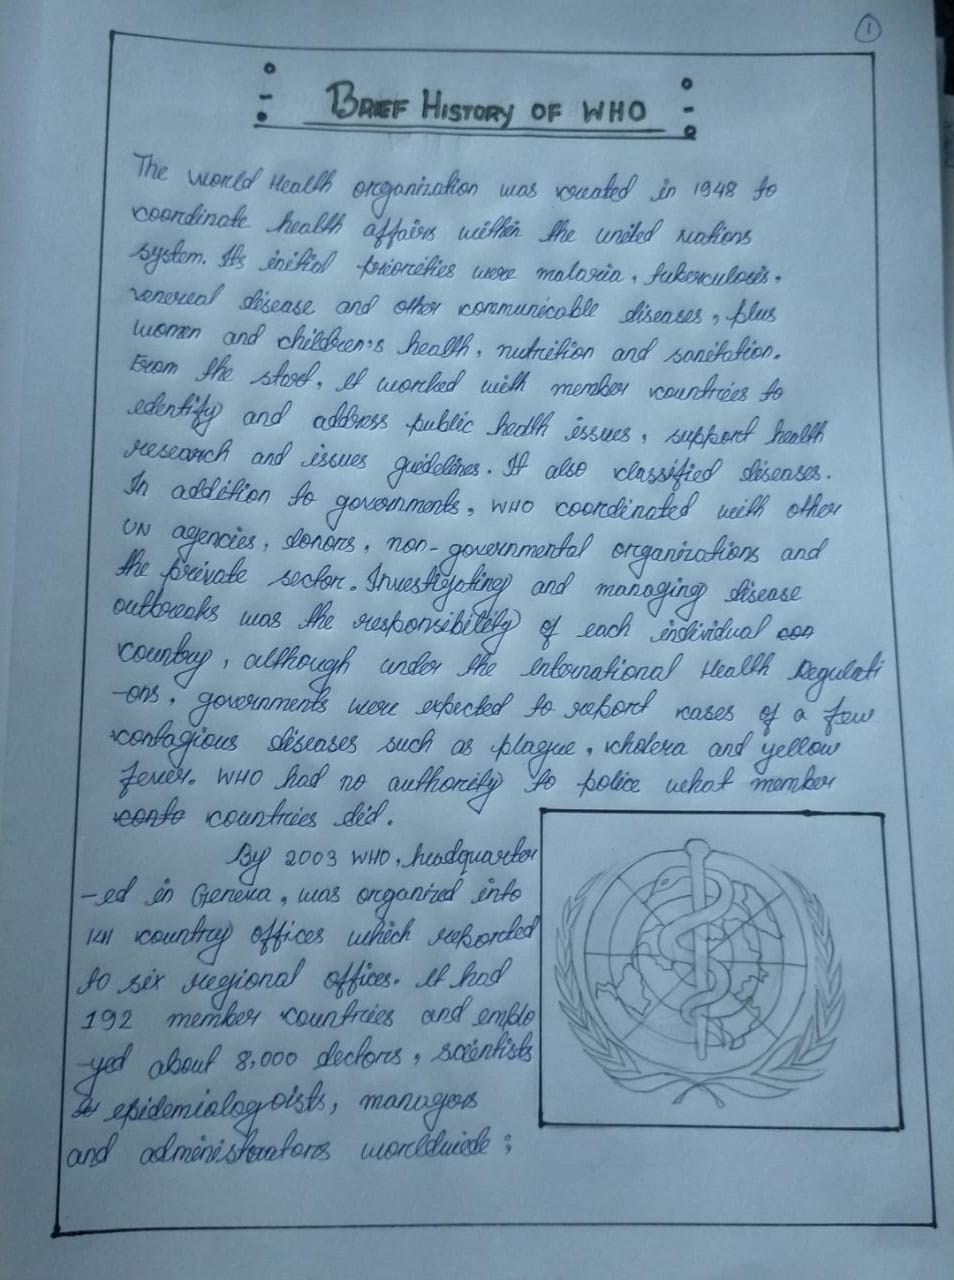 1
BRIEF HISTORY OF WHO
The world Health organization was created in 1948 to
coordinate health affairs within the united nations
system. Its initial priorities were malaria, tuberculosis,
venereal disease and other communicable diseases, plus
women and children's health, nutrition and sanitation.
From the start, it worked with member countries to
identify and address public health issues, support health
research and issues guidelines. It also classified diseases.
In addition to governments, WHO coordinated with other
UN agencies, donors, non-governmental organizations and
the private sector. Investigating and managing disease
outbreaks was the responsibility of each individual con
country, although under the international Health Regulati
-ons, governments were expected to report cases of a few
contagious diseases such as plague, cholera and yellow
fever. WHO had no authority to police what member
conto countries did.
By 2003 WHO, headquarter
-ed in Geneva, was organized into
141 country offices which reported
to six regional offices. It had
192 member countries and emplo
-yed about 8,000 doctors, scientists
epidemiologists, managers
and administrators worldwide;